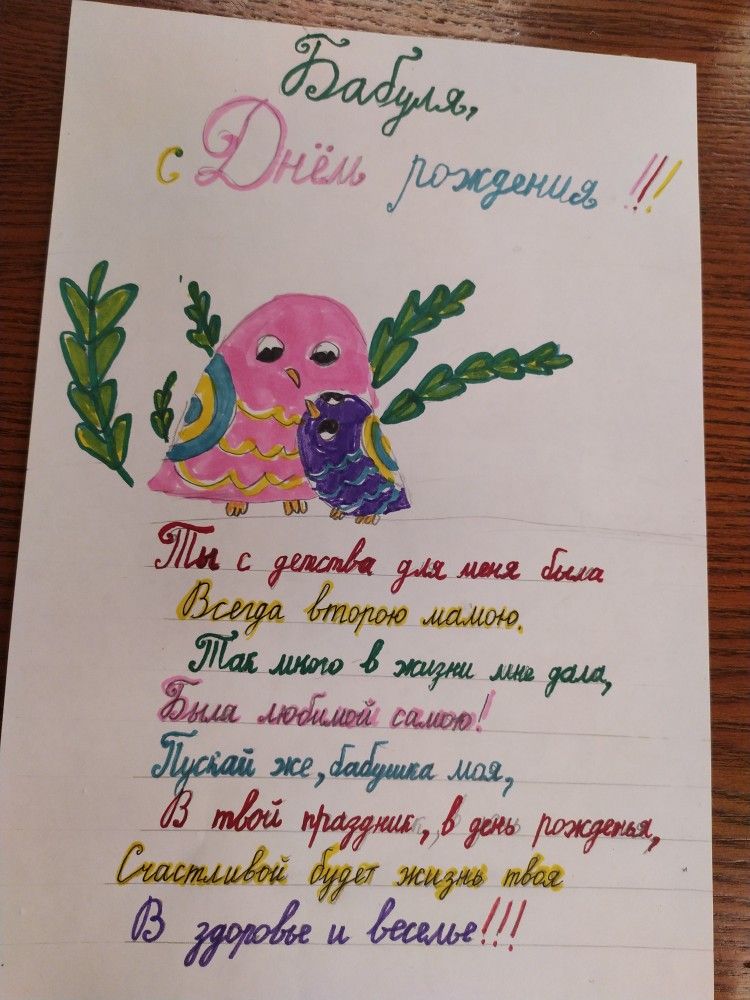 Бабуля,
с Днём рождения !!!
Ты с детства для меня была
Всегда второю мамою.
Так много в жизни мне дала,
Была любимой самою!
Пускай же, бабушка моя,
В твой праздник, в день рожденья,
Счастливой будет жизнь твоя
В здоровье и веселье!!!